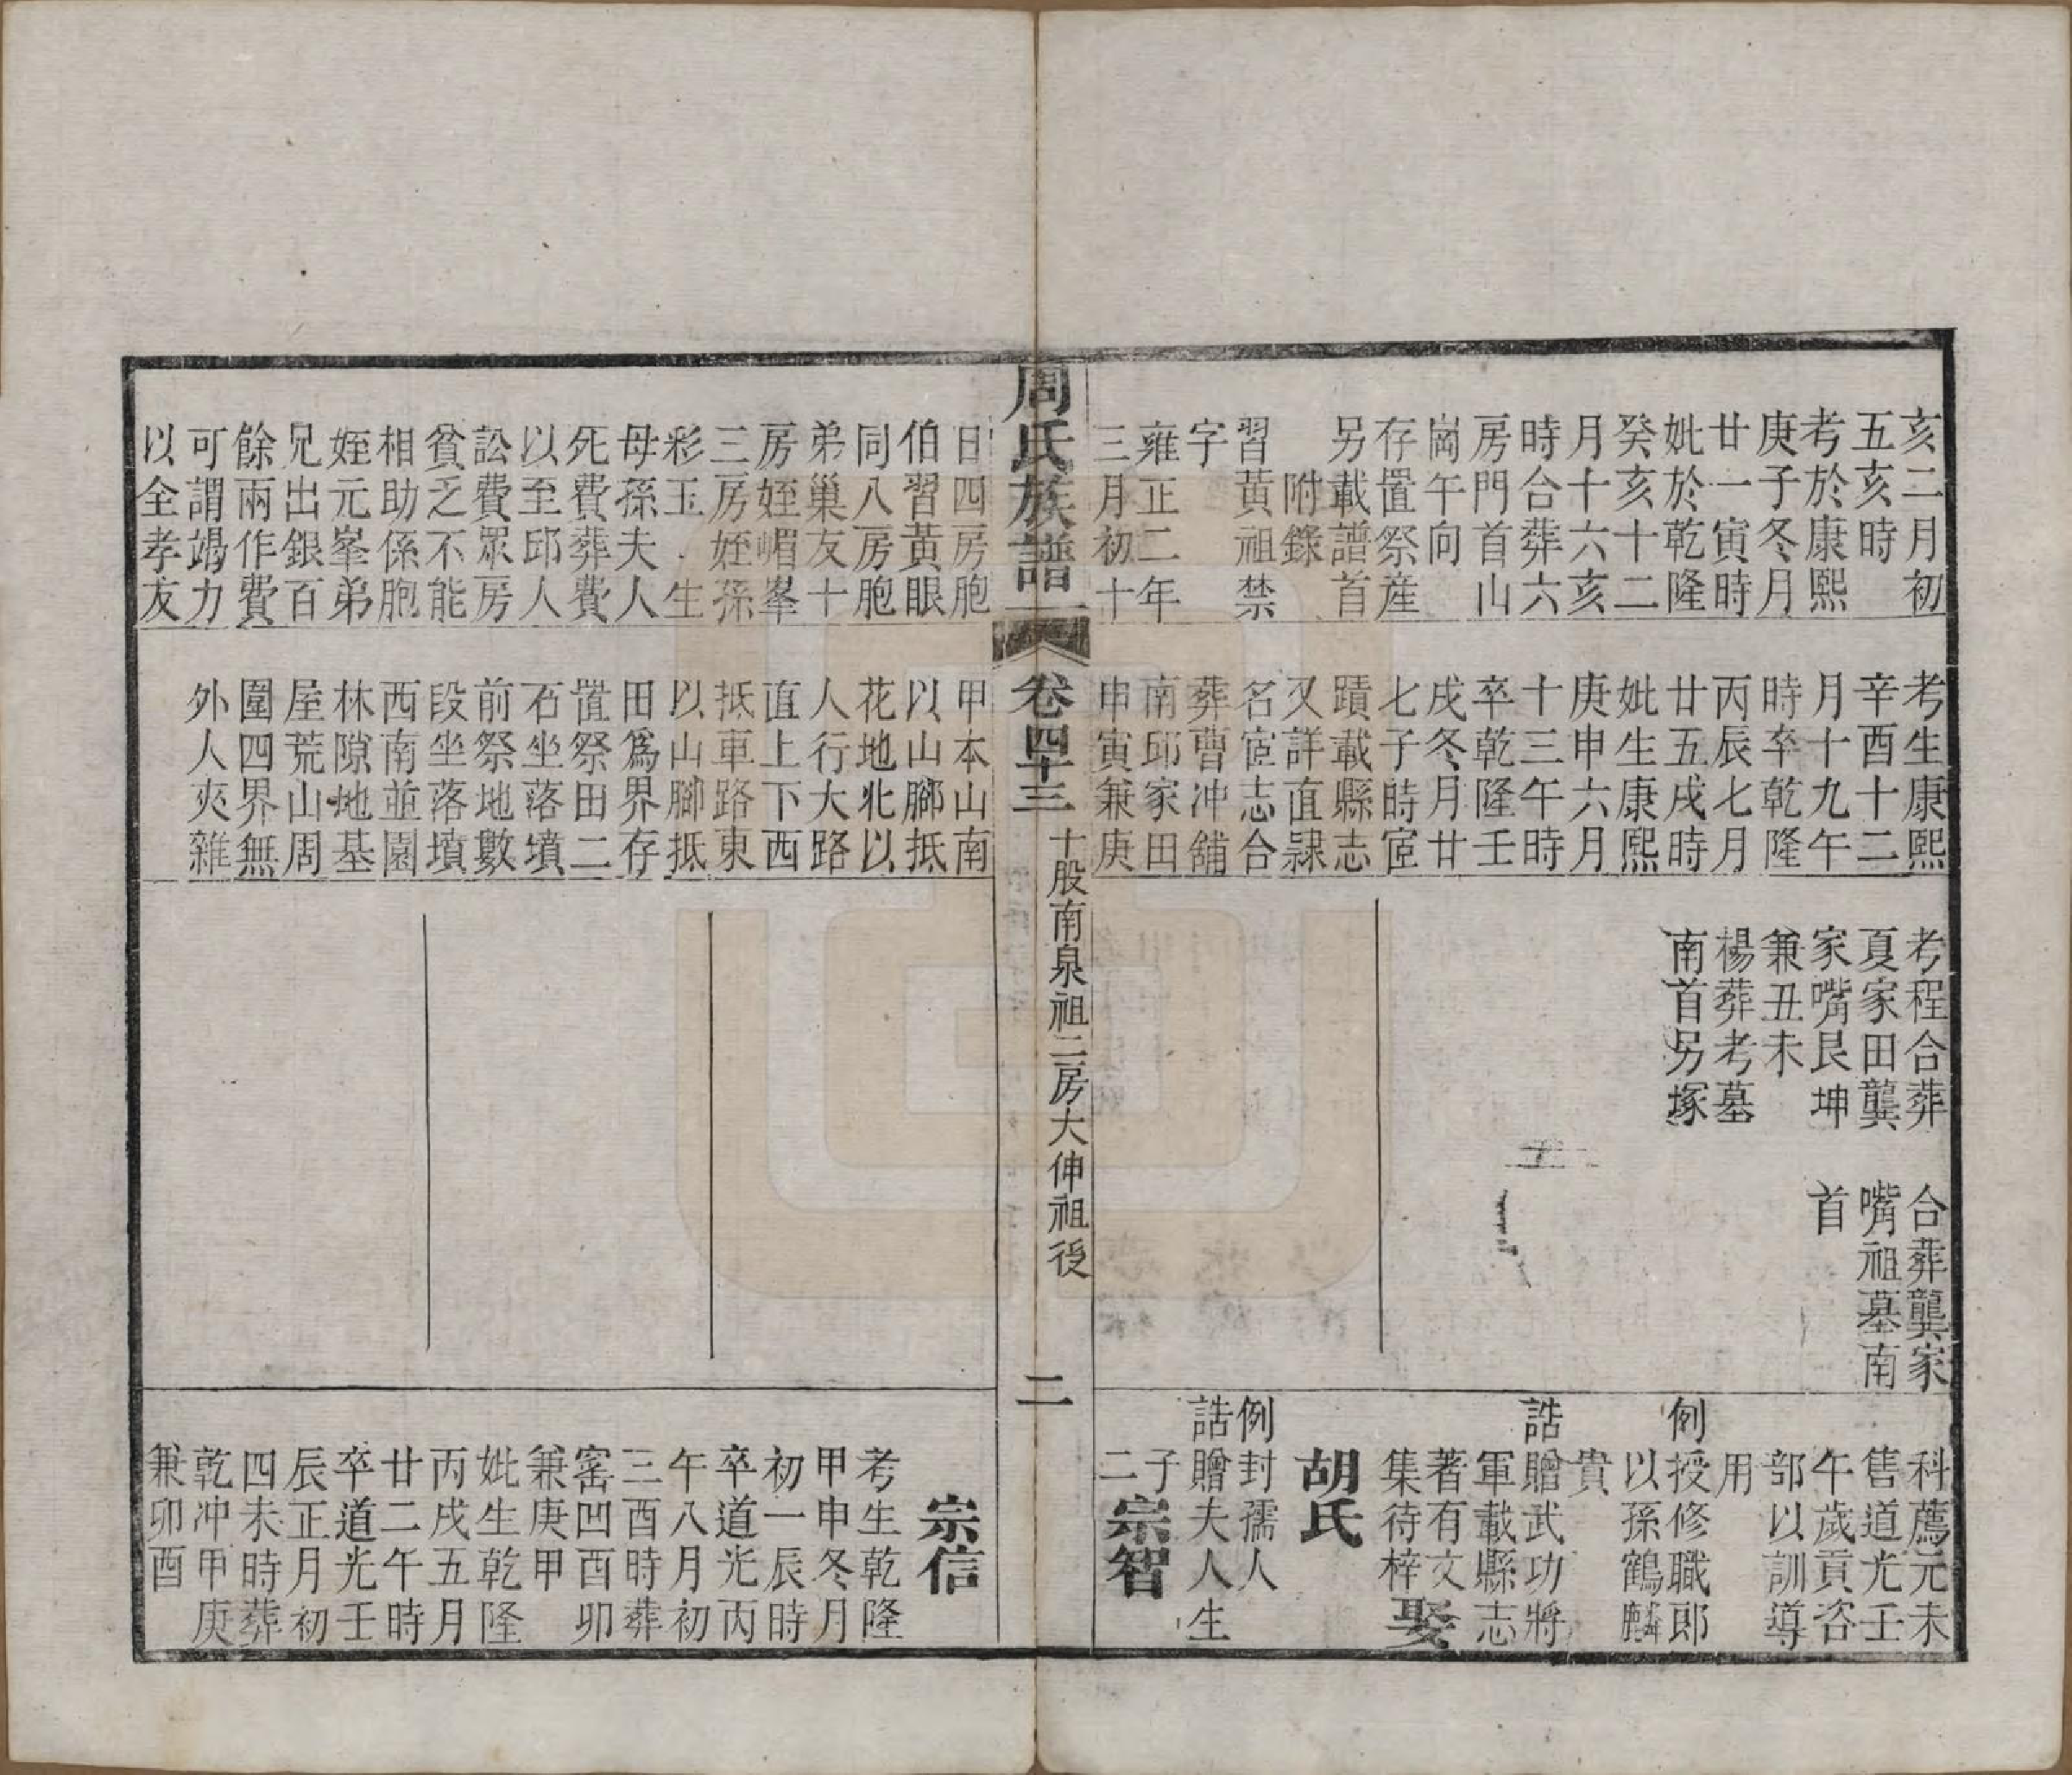 亥二月初
五亥時
考於康熙
庚子冬月
廿一寅時
妣於乾隆
癸亥十二
月十六亥
時合葬六
房門首山
崗午向
存置祭產
另載譜首
附錄
習黃祖禁
字
雍正二年
三月初十
考生康熙
辛酉十二
月十九午
時卒乾隆
丙辰七月
廿五戌時
妣生康熙
庚申六月
十三午時
卒乾隆壬
戌冬月廿
七子時宦
蹟載縣志
又詳直隸
名宦志合
葬曹冲舖
南邱家田
申寅兼庚
考程合葬
夏家田龔
家嘴艮坤
兼丑未
楊葬考墓
南首另塚
合葬龔家
嘴祖墓南
首
科薦元未
售道光壬
午歲貢咨
部以訓導
用
例授修職郎
以孫鶴麟
貴
誥贈武功將
軍載縣志
著有文
集待梓娶
胡氏
例封孺人
誥贈夫人生
子
二宗智
周氏族譜
卷四十三
十股南泉祖二房大伸祖後
二
日四房胞
伯習黃眼
同八房胞
弟巢友十
房姪嵋峯
三房姪孫
彩玉生
母孫夫人
死費葬費
以至邱人
訟費眾房
貧乏不能
相助係胞
姪元峯弟
兄出銀百
餘兩作費
可謂竭力
以全孝友
甲本山南
以山腳抵
花地北以
人行大路
直上下西
抵車路東
以山腳抵
田爲界存
置祭田二
石坐落墳
前祭地數
段坐落墳
西南並園
林隙地基
屋荒山周
圍四界無
外人夾雜
宗信
考生乾隆
甲申冬月
初一辰時
卒道光丙
午八月初
三酉時葬
窰凹酉卯
兼庚甲
妣生乾隆
丙戌五月
廿二午時
卒道光壬
辰正月初
四未時葬
乾冲甲庚
兼卯酉